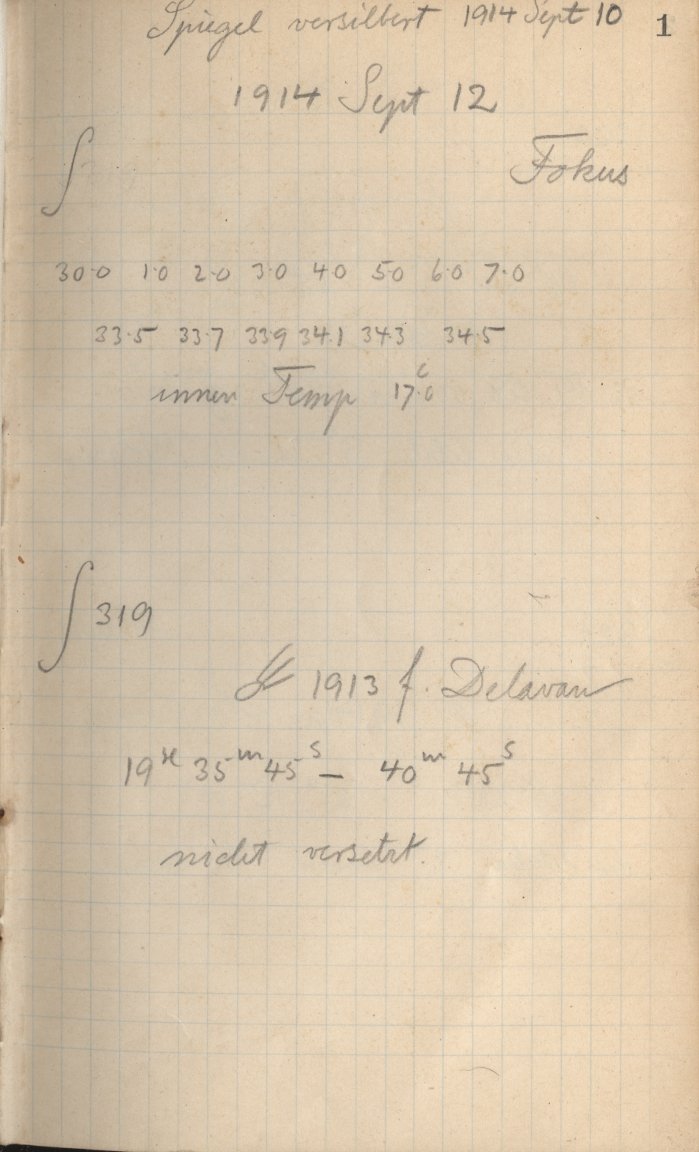 Spiegel versilbert 1914 Sept 10 1
1914 Sept 12
∫ Fokus
30.0 1.0 2.0 3.0 4.0 5.0 6.0 7.0
33.5 33.7 33.9 34.1 34.3 34.5
innen Temp
∫ 319
☄ 1913 f. Delavan
19ʰ 35ᵐ 45ˢ – 40ᵐ 45ˢ
nicht versetzt.